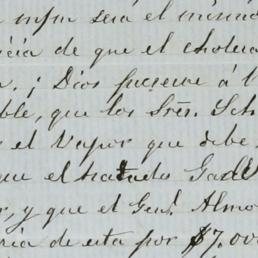 será el mismo
de que el cholera
¡Dios preserve á l
ble, que los Srēs. Sch
el Vapor que debe
que el tratado Gad
, y que el Genl. Almo
ria de esta por $7.00